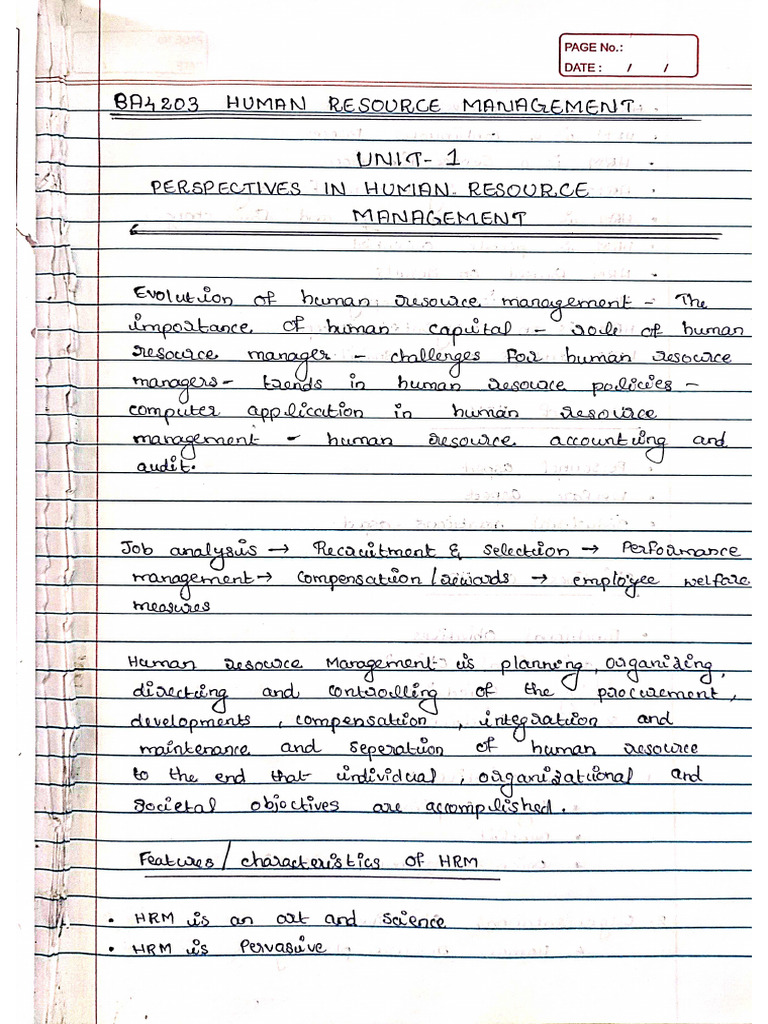 PAGE No.:
DATE : / /
BA4203 HUMAN RESOURCE MANAGEMENT
UNIT- 1
PERSPECTIVES IN HUMAN RESOURCE
MANAGEMENT
Evolution of human resource management - The
importance of human capital - role of human
resource manager - challenges for human resource
managers - trends in human resource policies -
computer application in human resource
management - human resource accounting and
audit.
Job analysis → Recruitment & selection → Performance
management → compensation / rewards → employee welfare
measures
Human resource Management is planning, organizing,
directing and controlling of the procurement,
developments, compensation, integration and
maintenance and seperation of human resource
to the end that individual, organizational and
societal objectives are accomplished.
Features / characteristics of HRM
• HRM is an art and science
• HRM is Pervasive